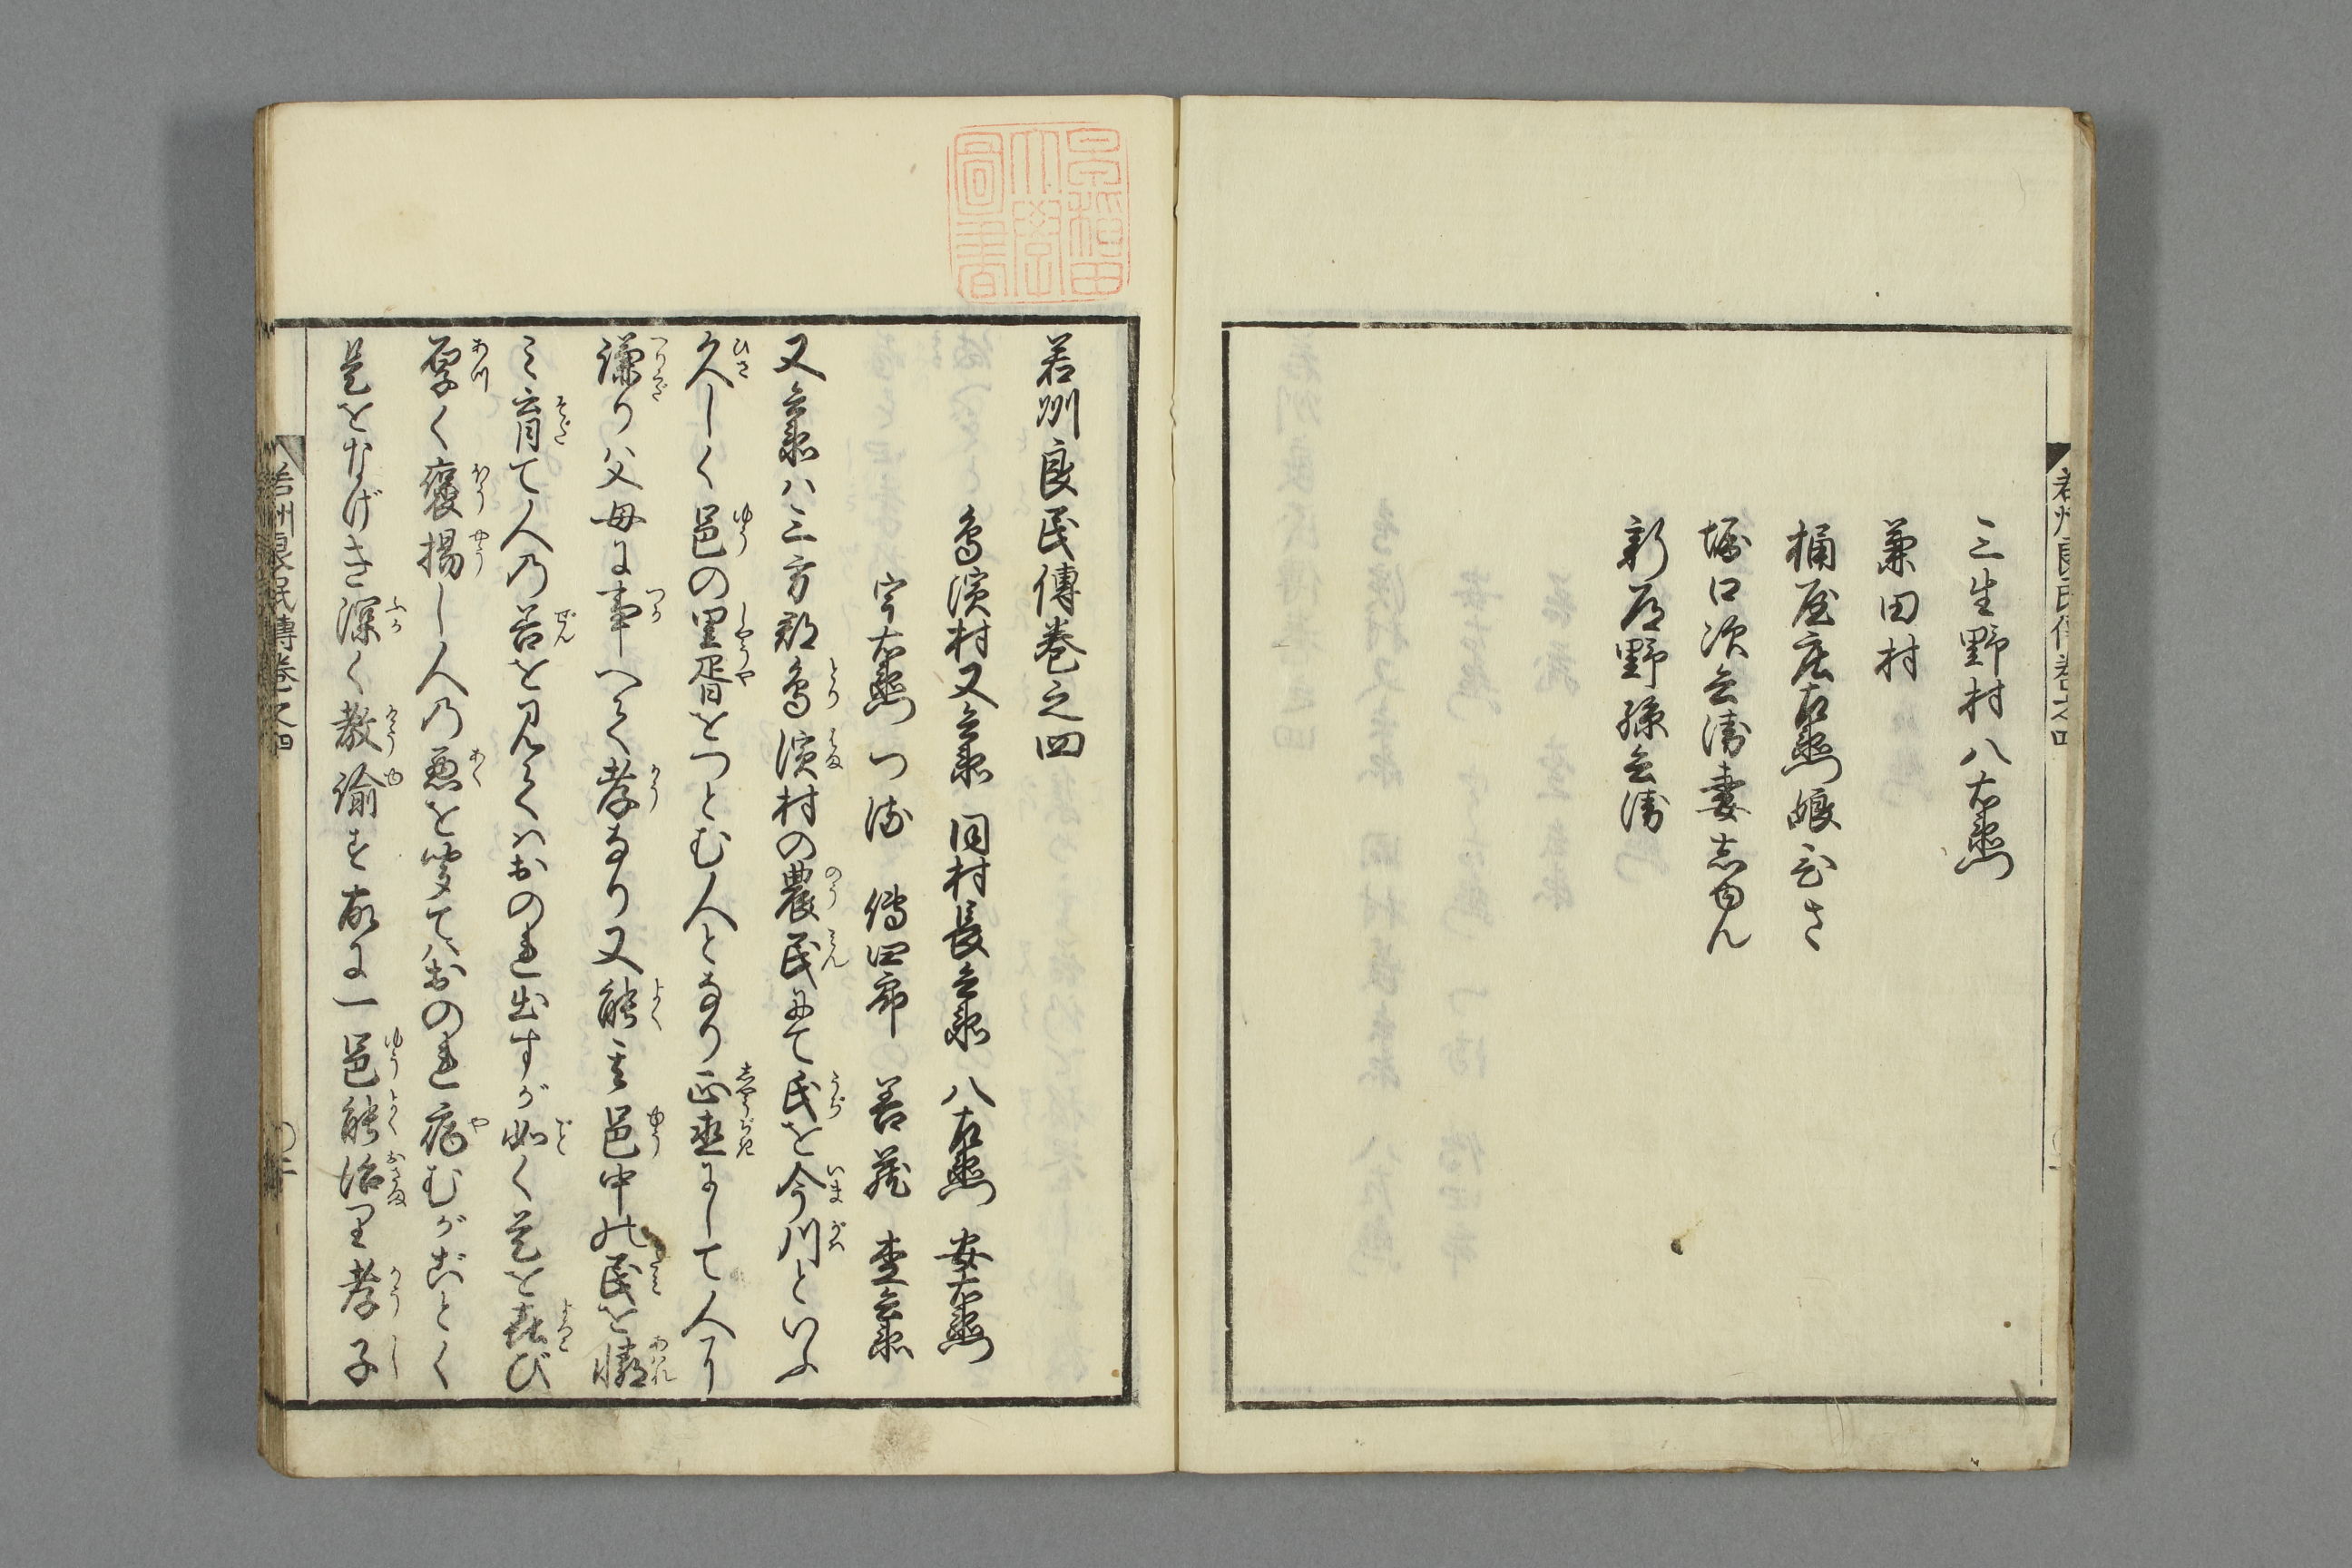 三生野村八右衛門
兼田村
桶屋庄右衛門娘きさ
堀口次兵衛妻志ゆん
新庄野孫兵衛
若州良民傳巻之四
若州良民傳巻之四
鳥濱村又兵衛 同村長兵衛 八右衛門 安右衛門
宇右衛門 つ満 傳四郎 善蔵 杢兵衛
又兵衛ハ三方郡鳥濱村の農民にて氏を今川といふ
久しく邑の里胥をつとむ人となり正直にして人に
謙り父母に事へて孝なり又能其邑中の民を憐
ミ育て人乃善を見てハおのれ出すが如く是を喜び
厚く褒揚し人乃悪を聞てハおのれ病むがごとく
是をなげき深く教諭す故に一邑能治り孝子
若州良民傳巻之四
〇二
早稲田大學圖書